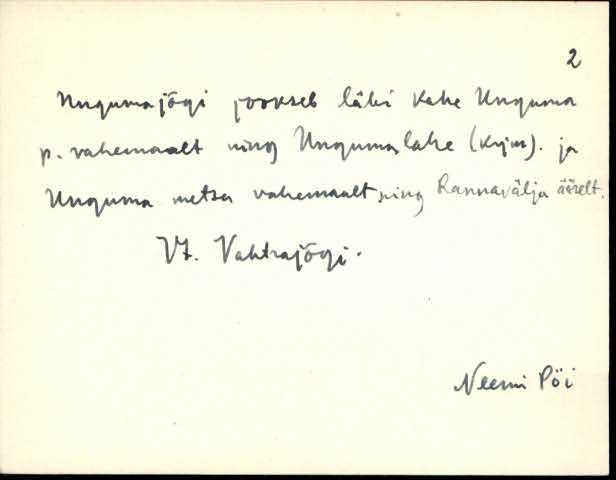 2
Unguma jõgi jookseb läbi kahe Unguma
p. vahemaalt ning Unguma lahe (knjm). ja
Unguma metsa vahemaalt ning Rannavälja äärelt.
Vt. Vahtrajõgi.
Neemi Pöi